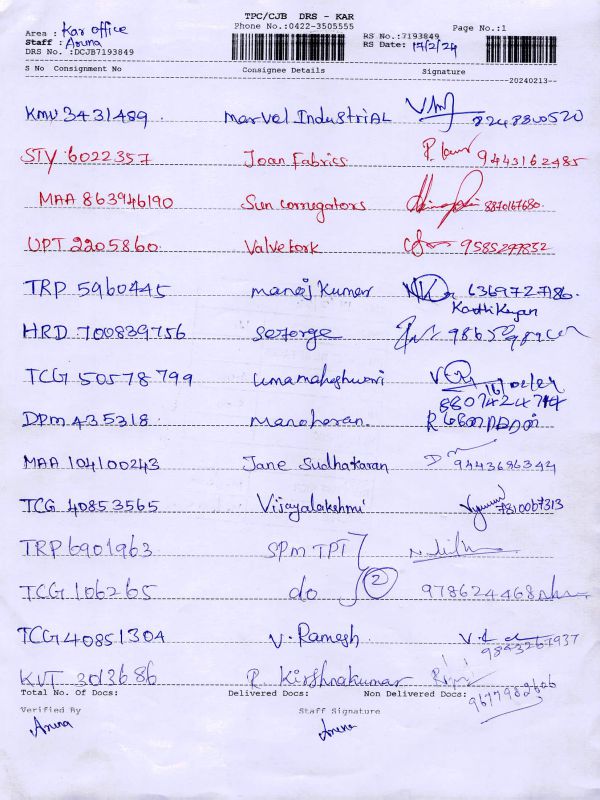 TPC/CJB DRS - KAR
Phone No.:0422-3505555
Page No.:1
Area : Kar office
Staff : Aruna
DRS No. :DCJB7193849
RS No.:7193849
RS Date: 17/2/24
S No Consignment No Consignee Details Signature
20240213
KMU 3431489 Marvel IndustriAL 8248800520
STY 6022357 Joan Fabrics 9443162485
MAA 863946190 Sun corrugators 8870167680
UPT 2205860 Valvetork 9585299832
TRP 5960445 manoj Kumar 6369727186
Karthikeyan
HRD 700839756 seforge
TCG 50578799 Umamaheshwari 16/02/24
8807424714
DPM 435318 Manoharan
MAA 104100243 Jane Sudhakaran 9443686342
TCG 40853565 Vijayalakshmi 7810067313
TRP 6901963 SPM TPT
TCG 106265 do 2 978624468
TCG 40851304 V. Ramesh 9843267937
KVT 3013686 R Kirshnakumar 9677982606
Total No. Of Docs: Delivered Docs: Non Delivered Docs:
Verified By Staff Signature
Aruna Aruna